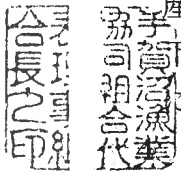 手賀沼漁業
協同組合代
表理事組
合長之印